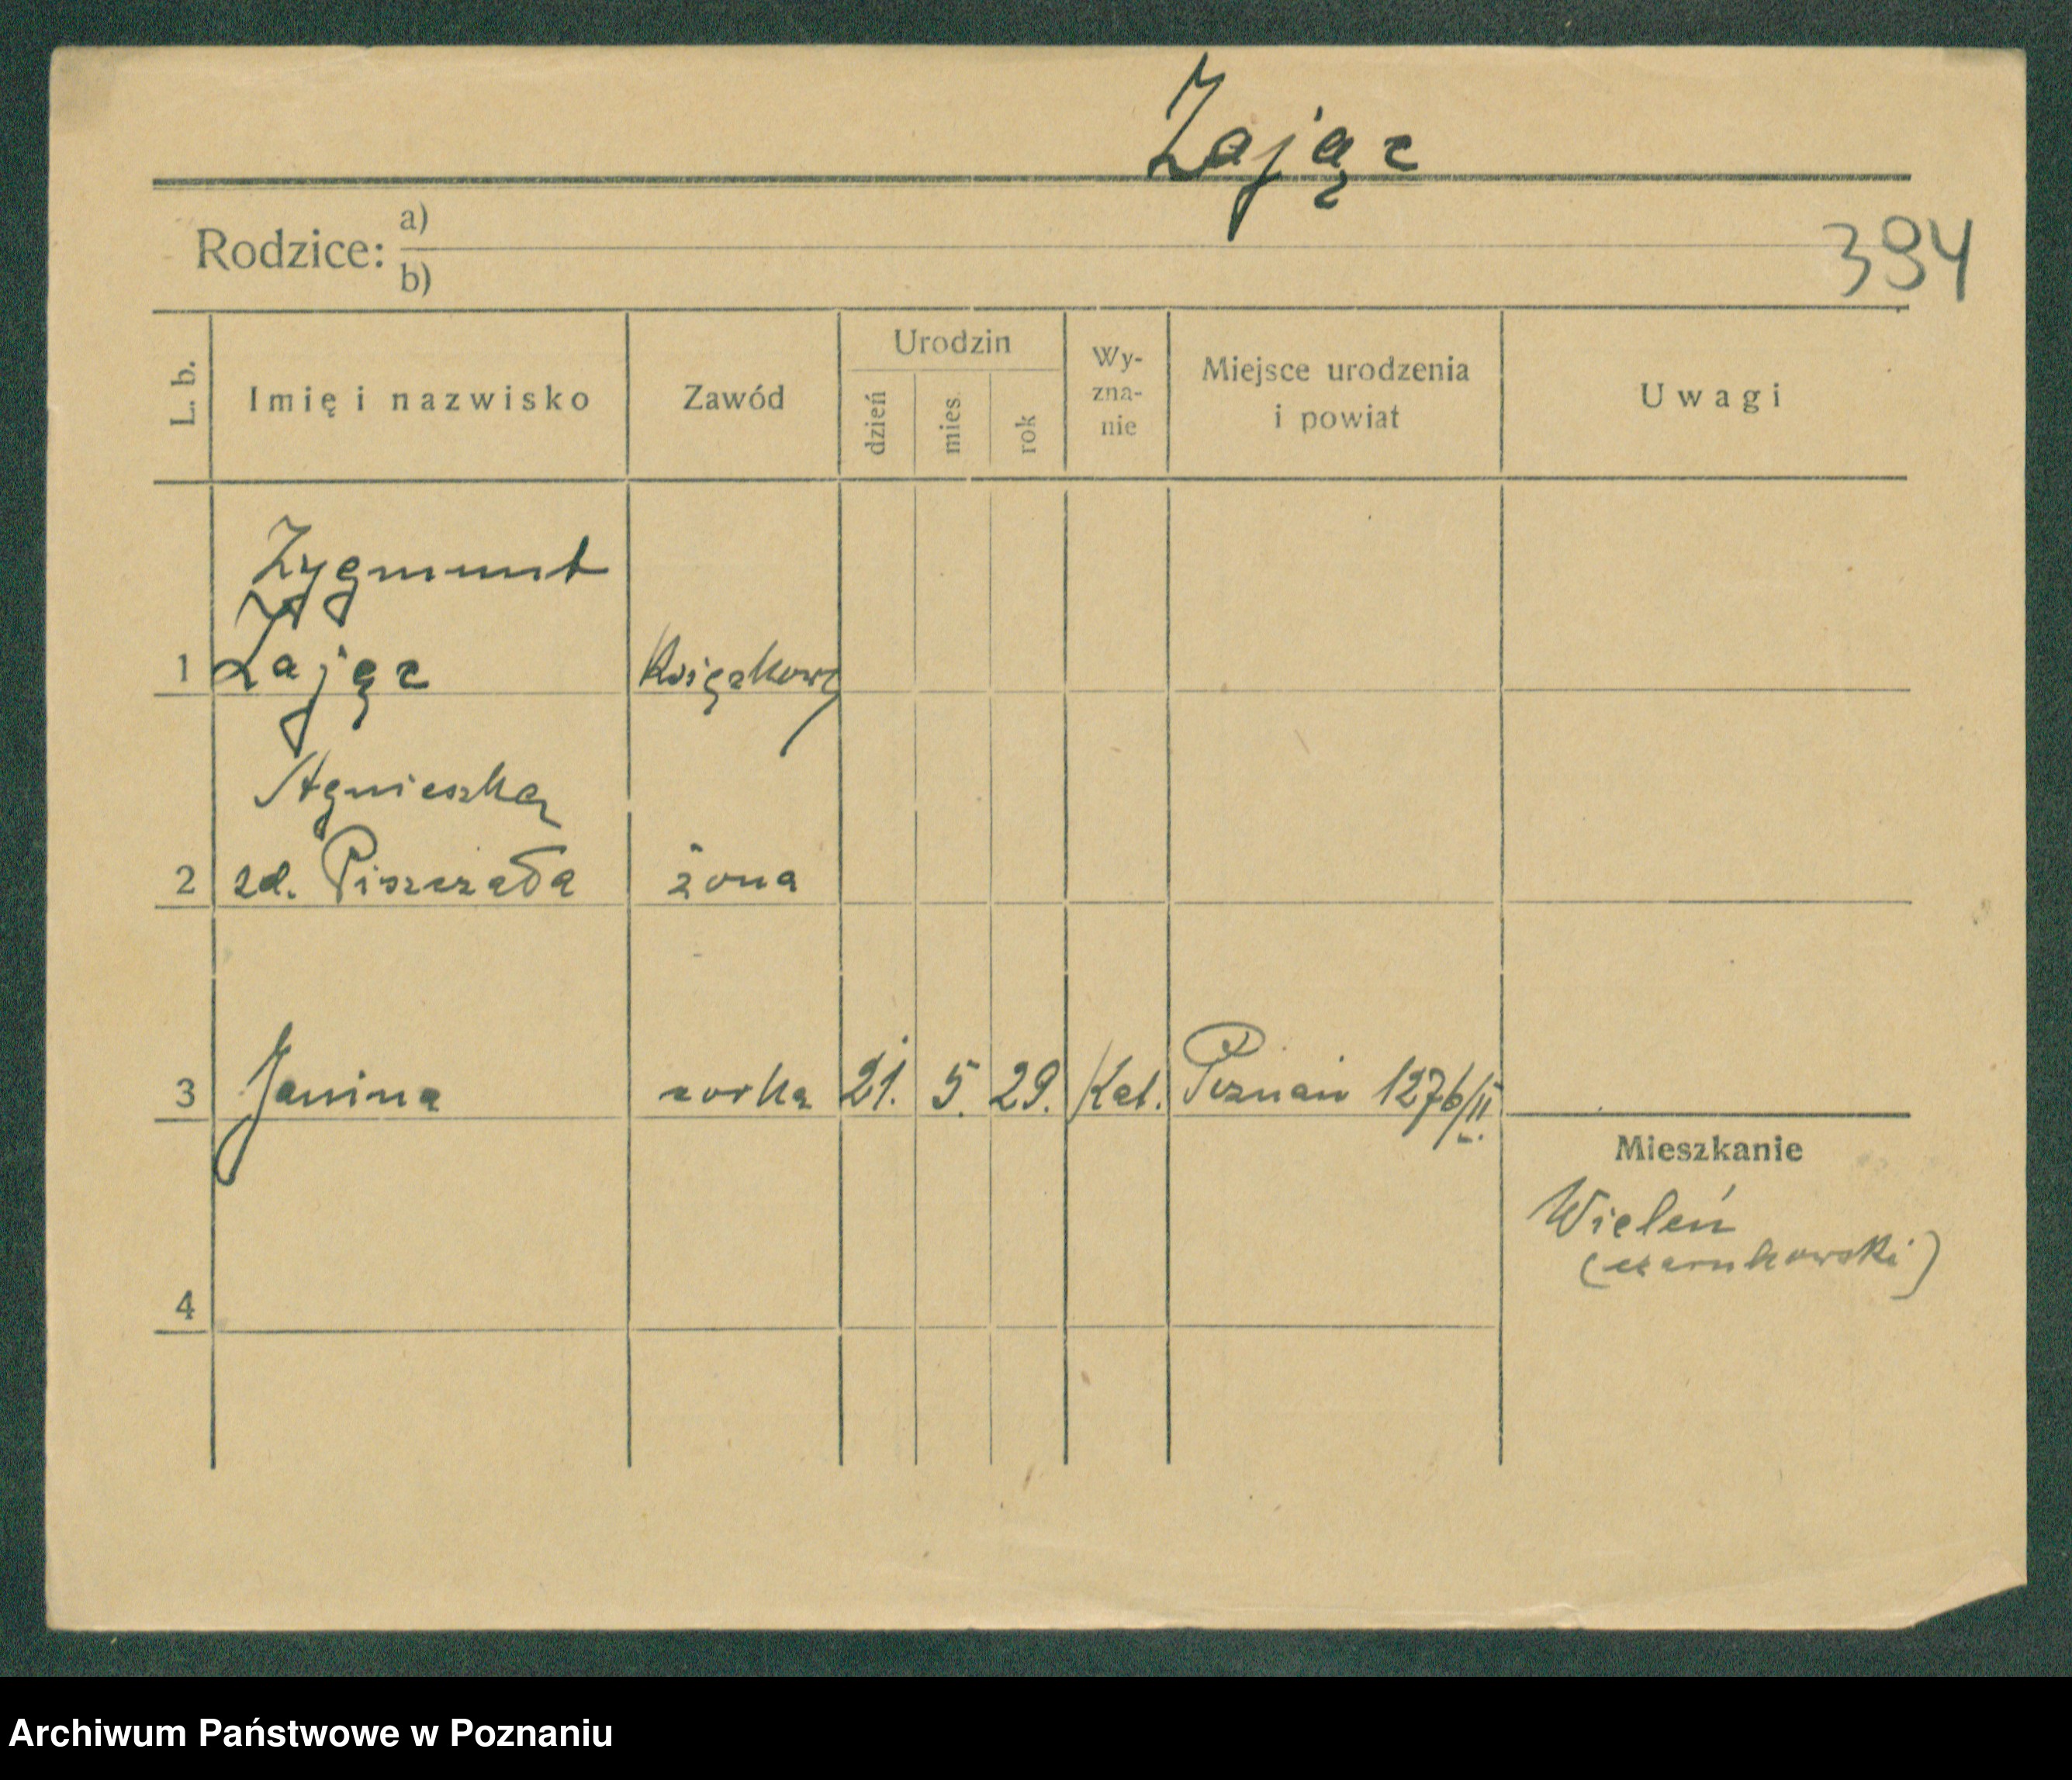 Zając
394
Rodzice: a)
b)
L. b.
Imię i nazwisko
Zawód
Urodzin
dzień
mies.
rok
Wy-
zna-
nie
Miejsce urodzenia
i powiat
Uwagi
Zygmunt
1 Zając Książkowy
Agnieszka
2 zd. Piszczała żona
3 Janina corka 21. 5. 29. Kat. Poznań 1276/II
Mieszkanie
Wieleń
(czarnkowski)
4
Archiwum Państwowe w Poznaniu